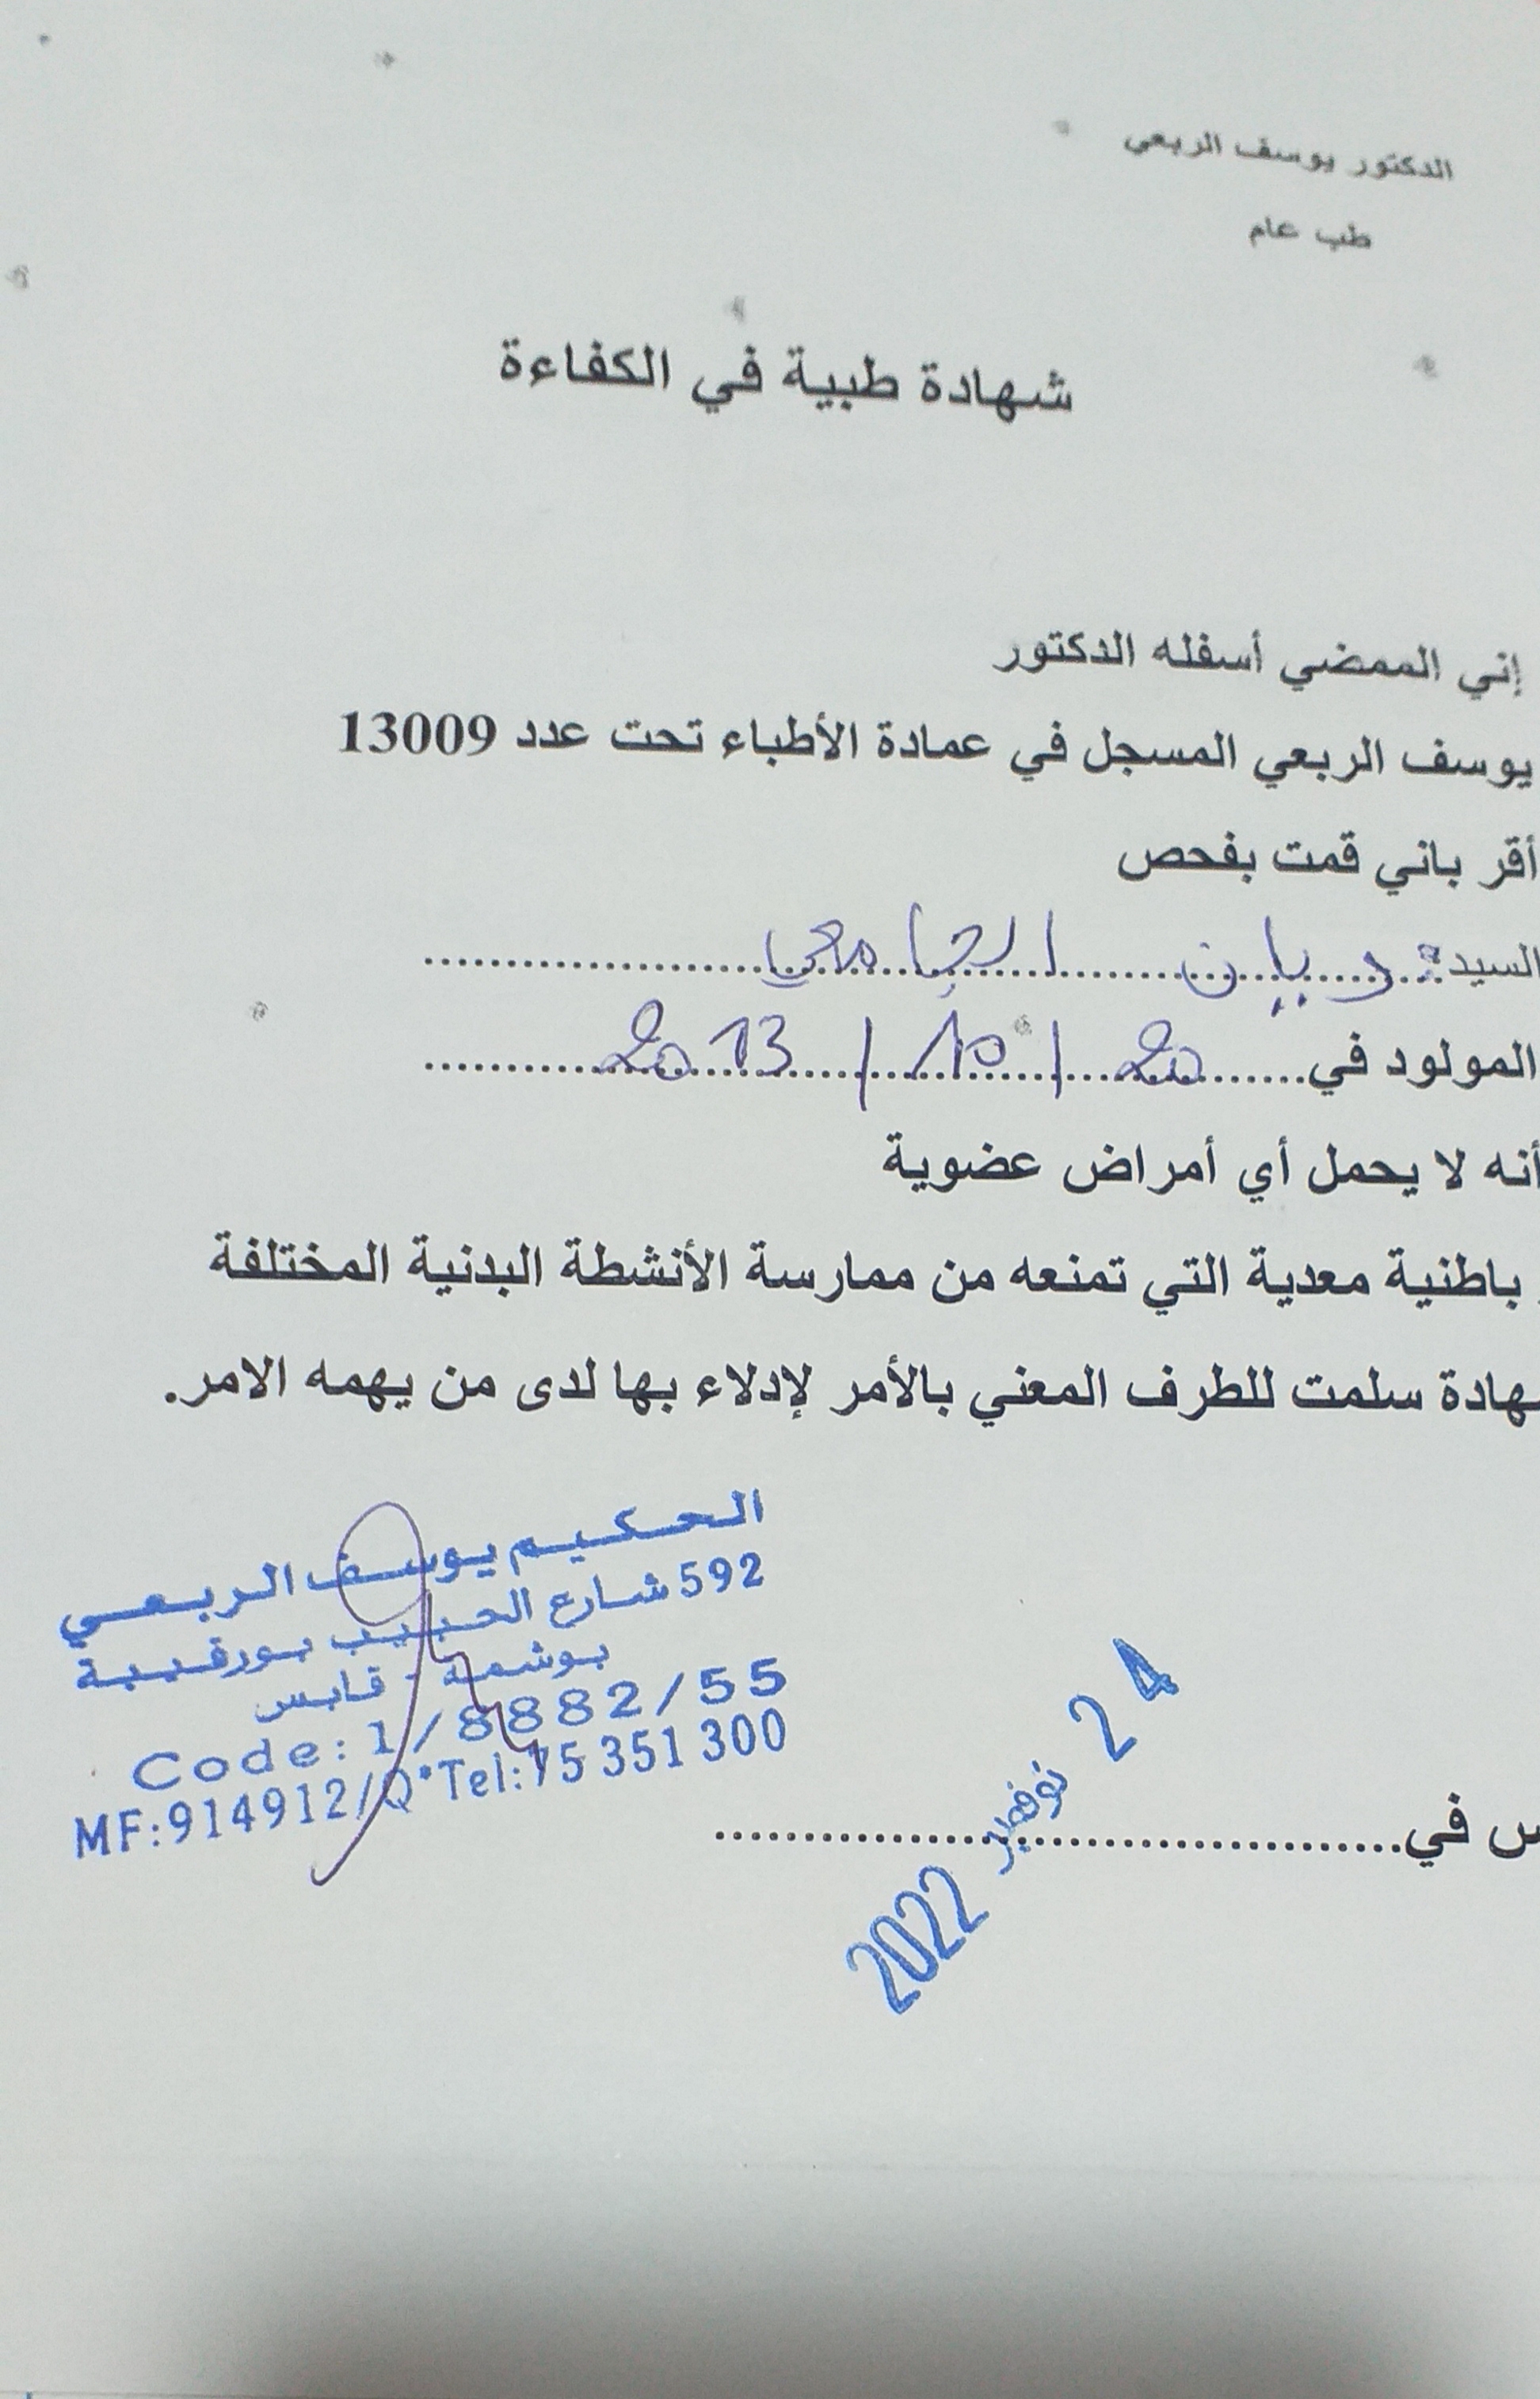 الدكتور يوسف الربعي
طب عام
شهادة طبية في الكفاءة
إني الممضي أسفله الدكتور
يوسف الربعي المسجل في عمادة الأطباء تحت عدد 13009
أقر باني قمت بفحص
السيد: ريان الجامعي
المولود في 20 / 10 / 2013
أنه لا يحمل أي أمراض عضوية
باطنية معدية التي تمنعه من ممارسة الأنشطة البدنية المختلفة
هادة سلمت للطرف المعني بالأمر لإدلاء بها لدى من يهمه الامر.
الحكيم يوسف الربعي
592 شارع الحبيب بورقيبة
بوشمة - قابس
Code: 1/8882/55
MF:914912/Q*Tel:75 351 300
س في
24 نوفمبر 2022